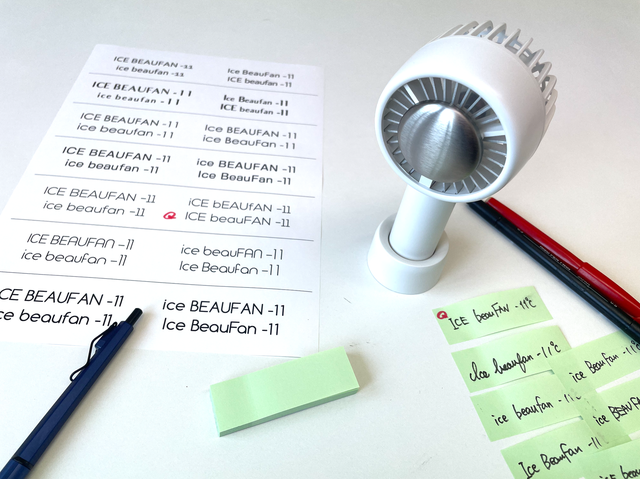 ICE BEAUFAN -11
ice beaufan -11
Ice BeauFan -11
ICE BeauFan -11
ICE BEAUFAN -11
ice beaufan -11
Ice Beaufan -11
ICE beaufan -11
ICE BEAUFAN -11
ice beaufan -11
ICE BEAUFAN -11
ice BeauFan -11
ICE BEAUFAN -11
ice beaufan -11
ice BEAUFAN -11
Ice BeauFan -11
ICE BEAUFAN -11
ice beaufan -11
ICE bEAUfAN -11
ICE beauFAN -11
ICE BEAUFAN -11
ice beaufan -11
ice beauFAN -11
Ice Beaufan -11
CE BEAUFAN -11
ce beaufan -11
ice BEAUFAN -11
Ice BeauFan -11
ICE beauFAN -11℃
Ice beaufan -11℃
ice beaufan -11℃
Ice BeauFan -11
ice BeauFan -11℃
ice BEAUFA